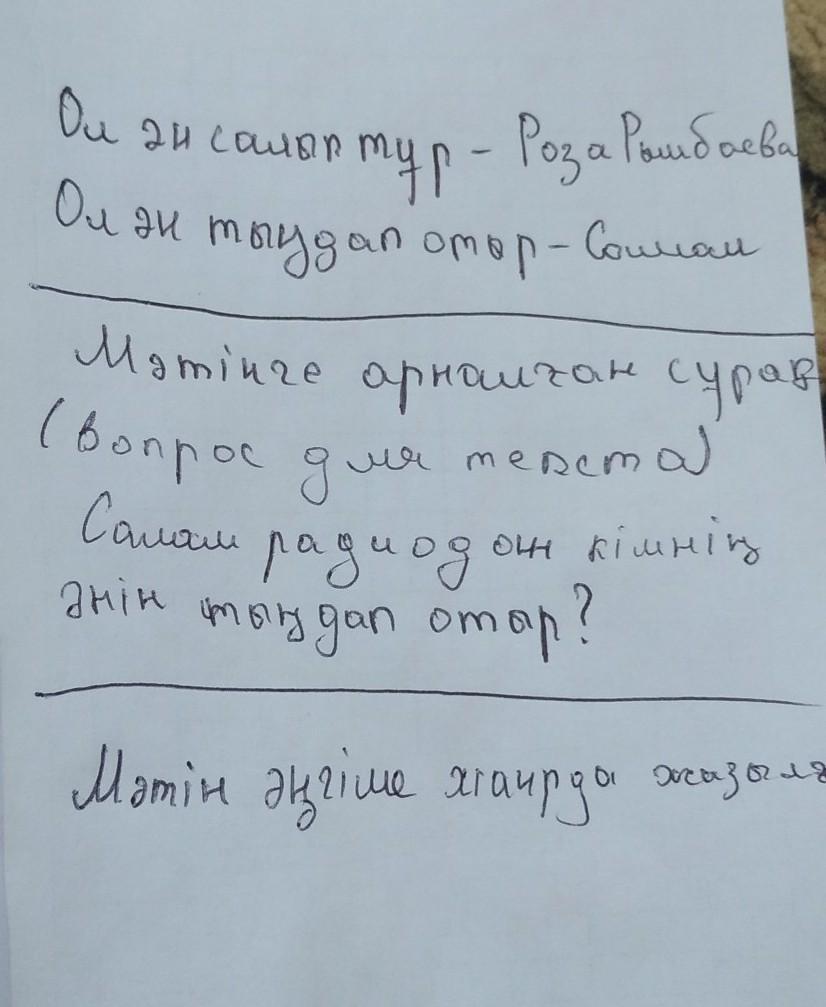 Ол ән салып тұр - Роза Рымбаева
Ол ән тыңдап отыр - Салтанат
Мәтінге арналған сұрақ
(вопрос для текста)
радиодан кімнің
әнін тыңдап отыр?
Мәтін әңгіме жанрда жазылға